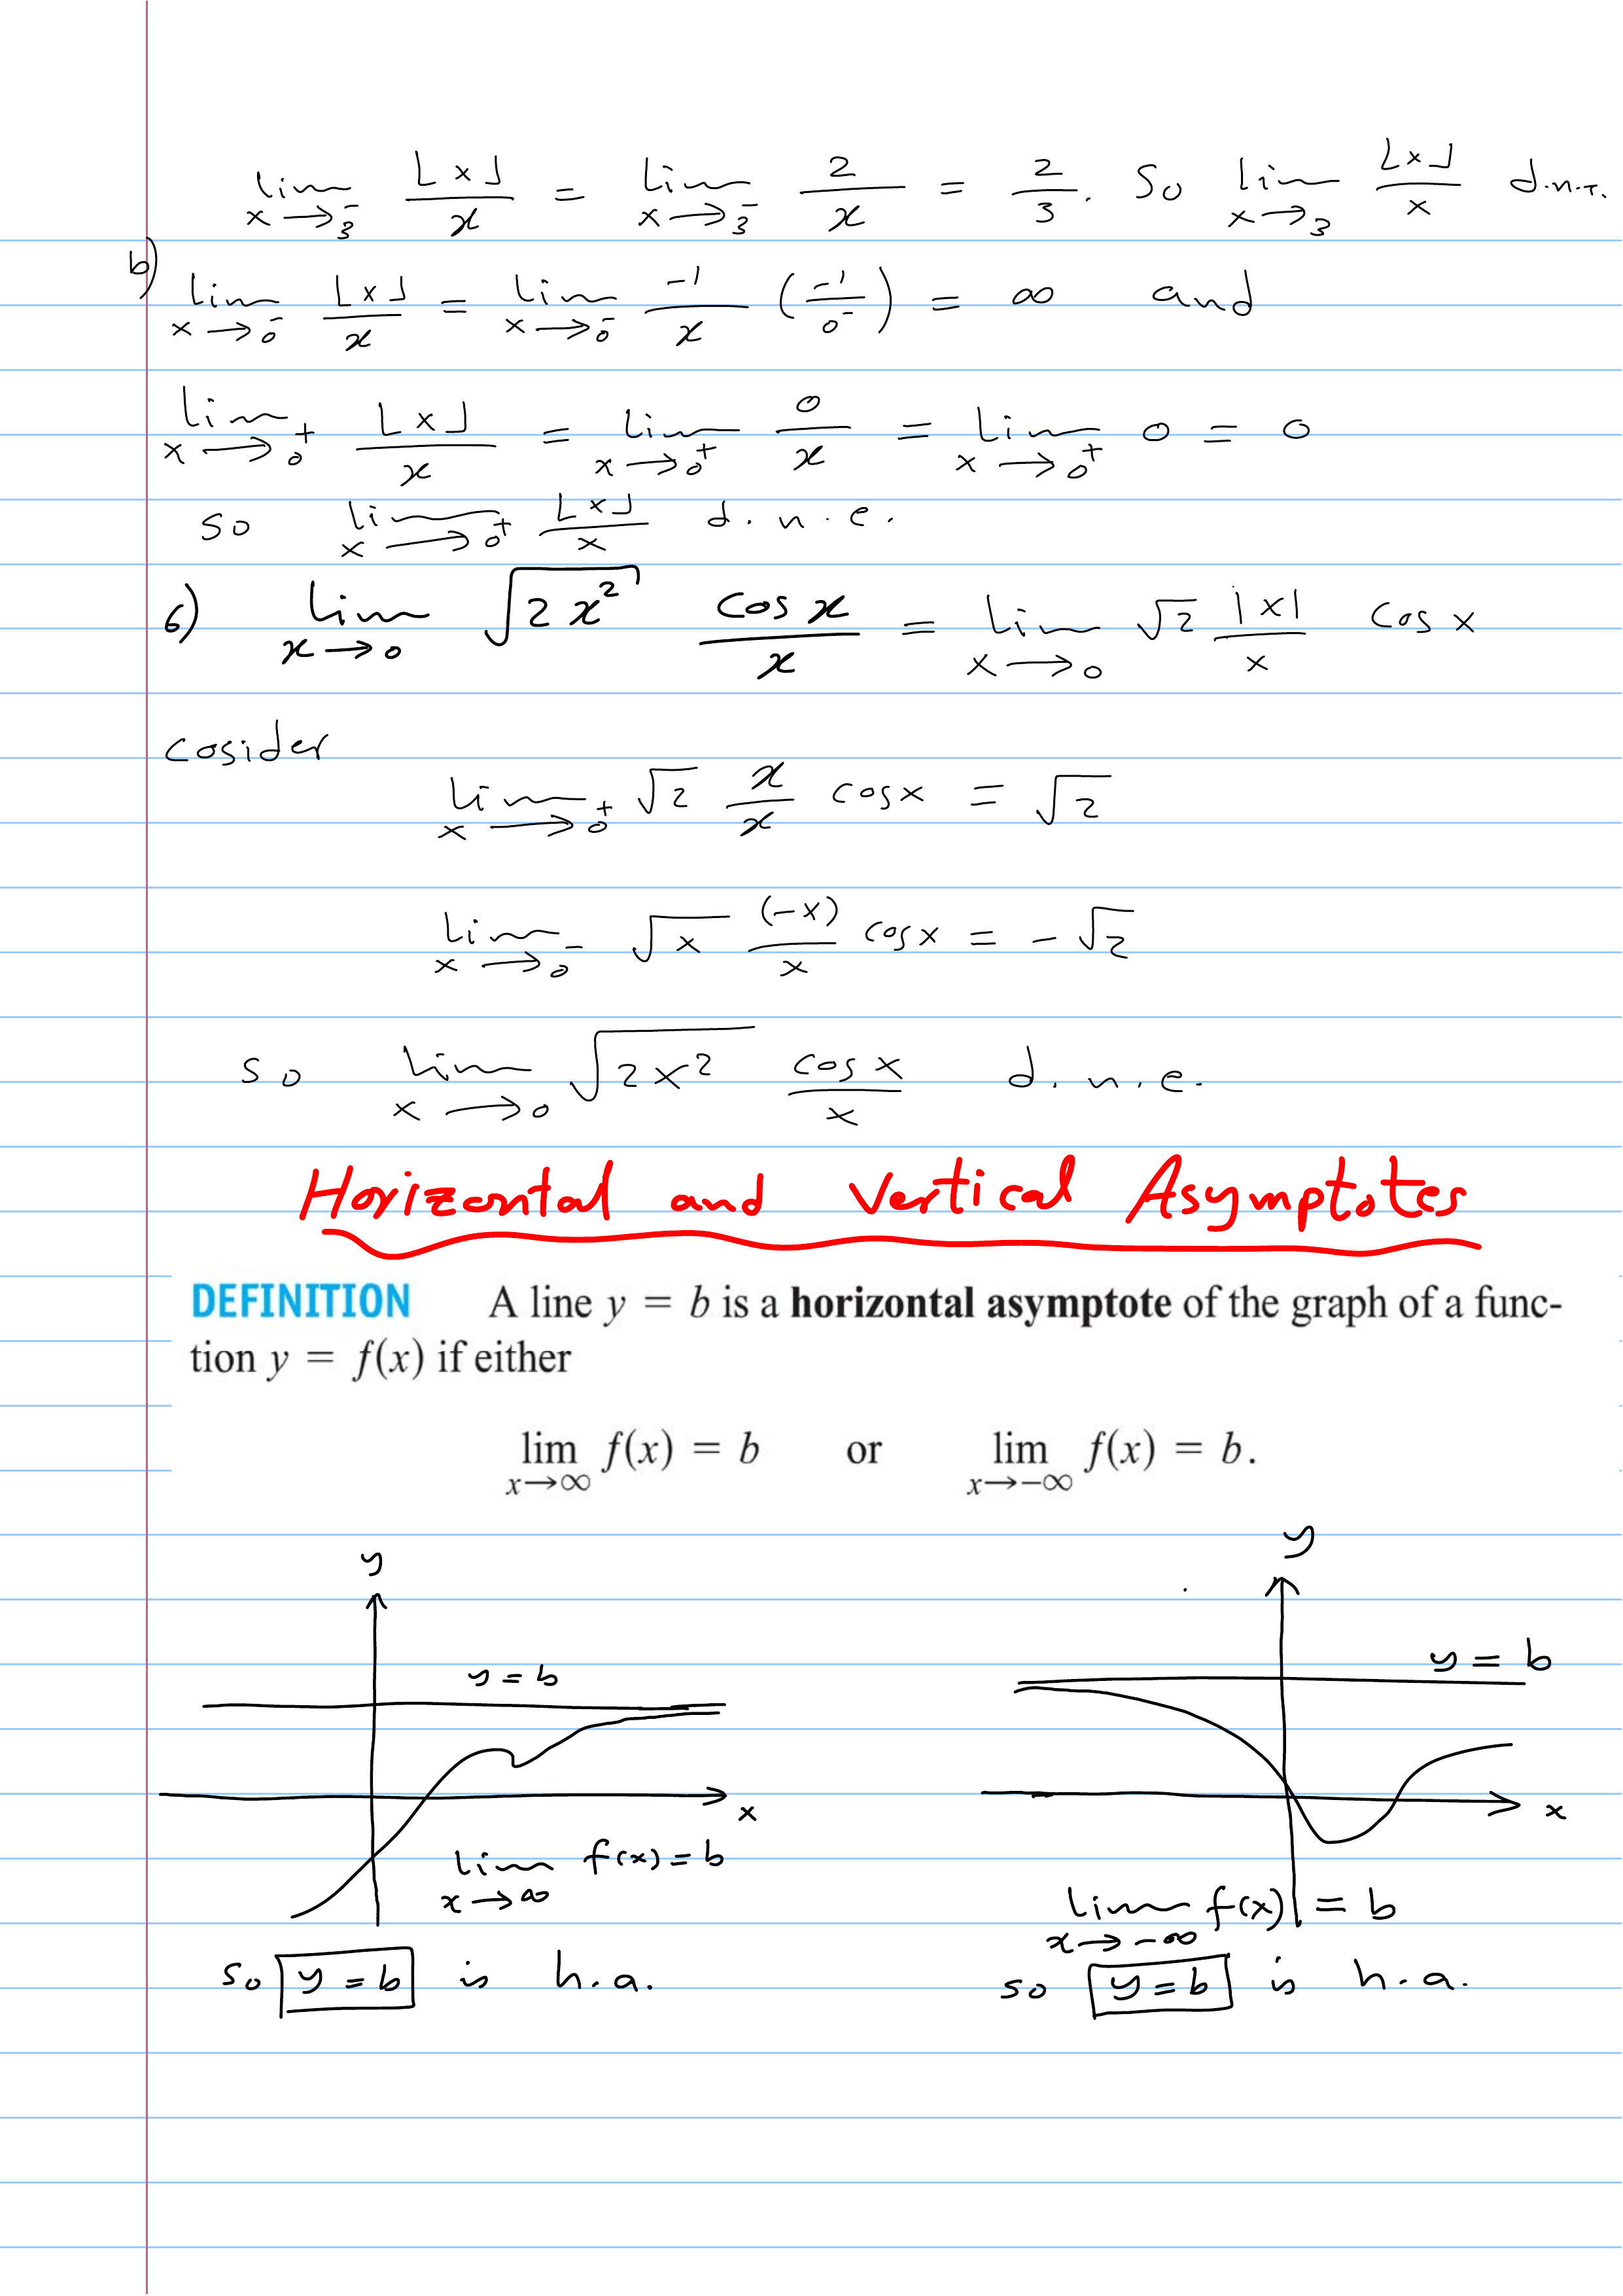 lim x→3⁻ ⌊x⌋/x = lim x→3⁻ 2/x = 2/3. So lim x→3 ⌊x⌋/x d.n.τ.
b) lim x→0⁻ ⌊x⌋/x = lim x→0⁻ -1/x (-1/0⁻) = ∞ and
lim x→0⁺ ⌊x⌋/x = lim x→0⁺ 0/x = lim x→0⁺ 0 = 0
so lim x→0⁺ ⌊x⌋/x d.n.e.
6) lim x→0 √(2x²) cos x/x = lim x→0 √2 |x|/x cos x
cosider
lim x→0⁺ √2 x/x cosx = √2
lim x→0⁻ √x (-x)/x cosx = -√2
so lim x→0 √(2x²) cosx/x d.n.e.
Horizontal and Vertical Asymptotes
DEFINITION A line y = b is a horizontal asymptote of the graph of a func-
tion y = f(x) if either
lim x→∞ f(x) = b or lim x→-∞ f(x) = b.
y
y = b
x
lim x→∞ f(x) = b
so y = b is h.a.
y
y = b
x
lim x→-∞ f(x) = b
so y = b is h.a.